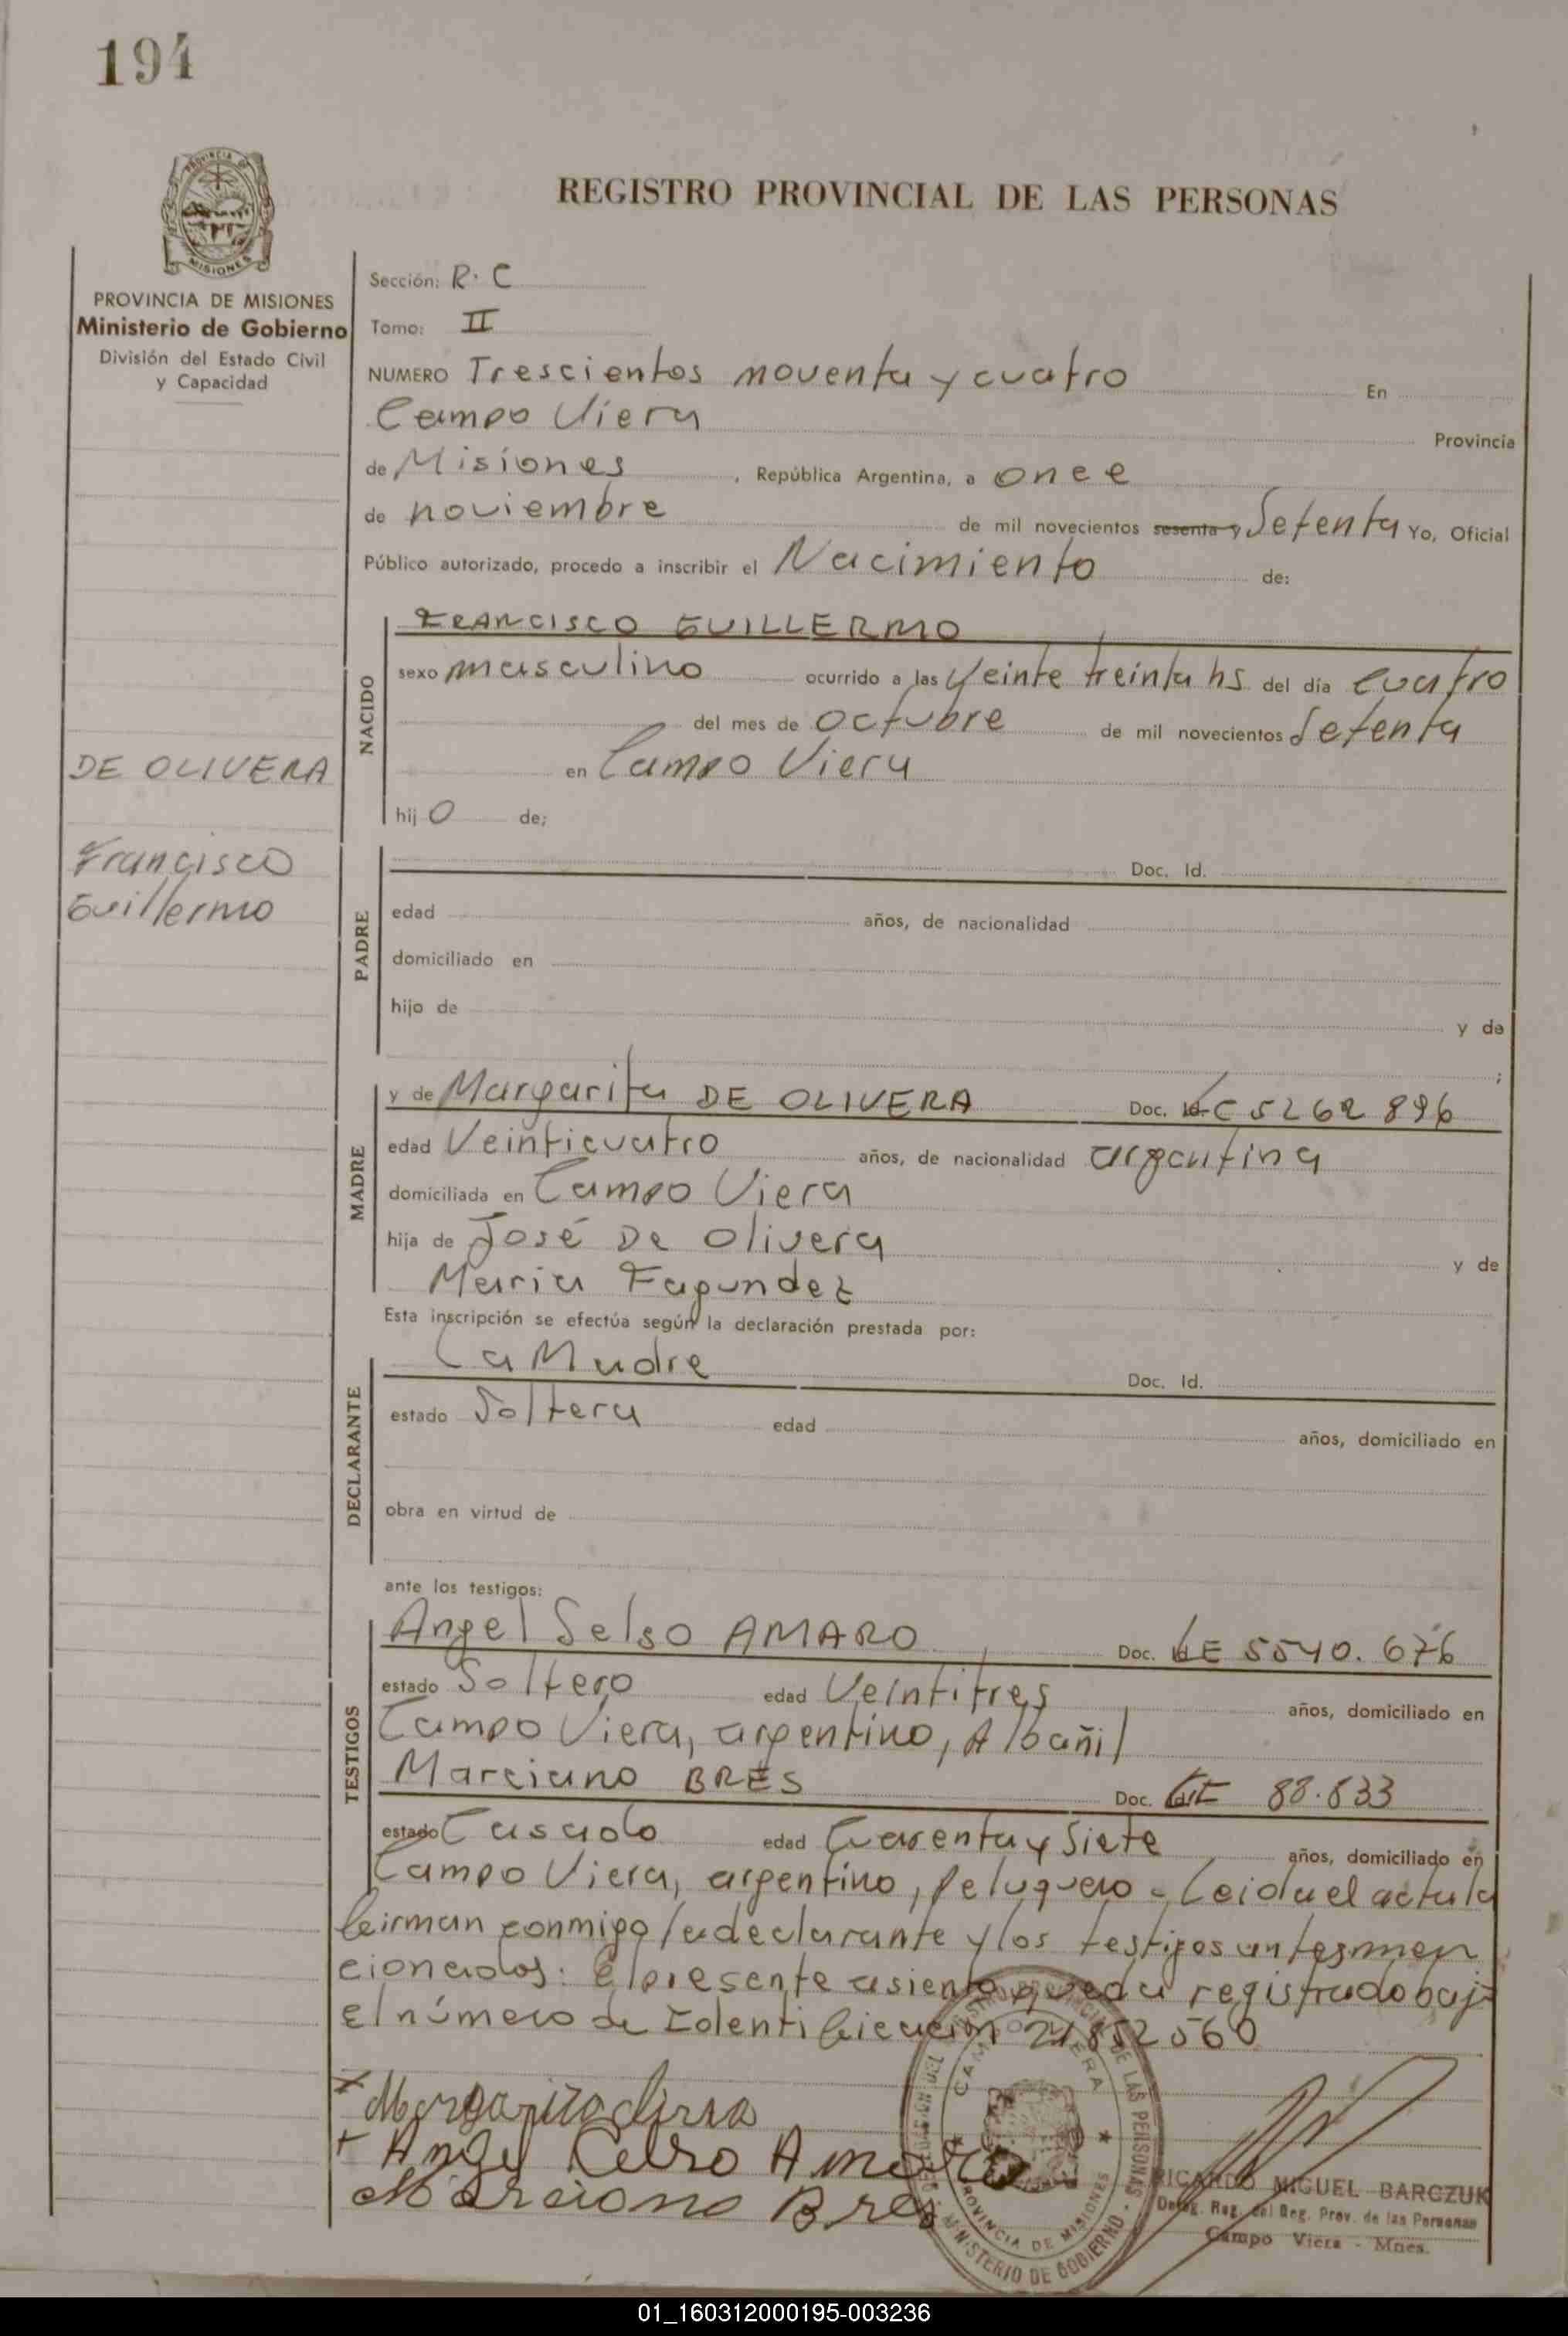 194
PROVINCIA DE MISIONES
PROVINCIA DE MISIONES
Ministerio de Gobierno
División del Estado Civil
y Capacidad
DE OLIVERA
Francisco
Guillermo
REGISTRO PROVINCIAL DE LAS PERSONAS
Sección: R. C
Tomo: II
NUMERO Trescientos noventa y cuatro En
Campo Viera Provincia
de Misiones, República Argentina, a once
de noviembre de mil novecientos sesenta y Setenta Yo, Oficial
Público autorizado, procedo a inscribir el Nacimiento de:
NACIDO
FRANCISCO GUILLERMO
sexo masculino ocurrido a las Veinte treinta hs del día cuatro
del mes de octubre de mil novecientos Setenta
en Campo Viera
hij o de;
PADRE
Doc. Id.
edad años, de nacionalidad
domiciliado en
hijo de y de
;
MADRE
y de Margarita DE OLIVERA Doc. LC 5262896
edad Veinticuatro años, de nacionalidad argentina
domiciliada en Campo Viera
hija de José De Olivera y de
Maria Fagundez
Esta inscripción se efectúa según la declaración prestada por:
DECLARANTE
La Madre Doc. Id.
estado Soltera edad años, domiciliado en
obra en virtud de
ante los testigos:
TESTIGOS
Angel Selso AMARO Doc. LE 5540.676
estado Soltero edad Veintitres años, domiciliado en
Campo Viera, argentino, Albañil
Marciano BRES Doc. 88.833
estado Casado edad Cuarenta y Siete años, domiciliado en
Campo Viera, argentino, Peluquero - Leida el acta la
firman conmigo la declarante y los testigos antes men
cionados. El presente asiento queda registrado bajo
el número de Identificacion 21852560
Margarita
+ Angel Celso Amaro
Marciano Bres
CAMPO VIERA
PROVINCIA DE MISIONES
MINISTERIO DE GOBIERNO
RICARDO MIGUEL BARCZUK
Deleg. Reg. del Reg. Prov. de las Personas
Campo Viera - Mnes.
01_160312000195-003236